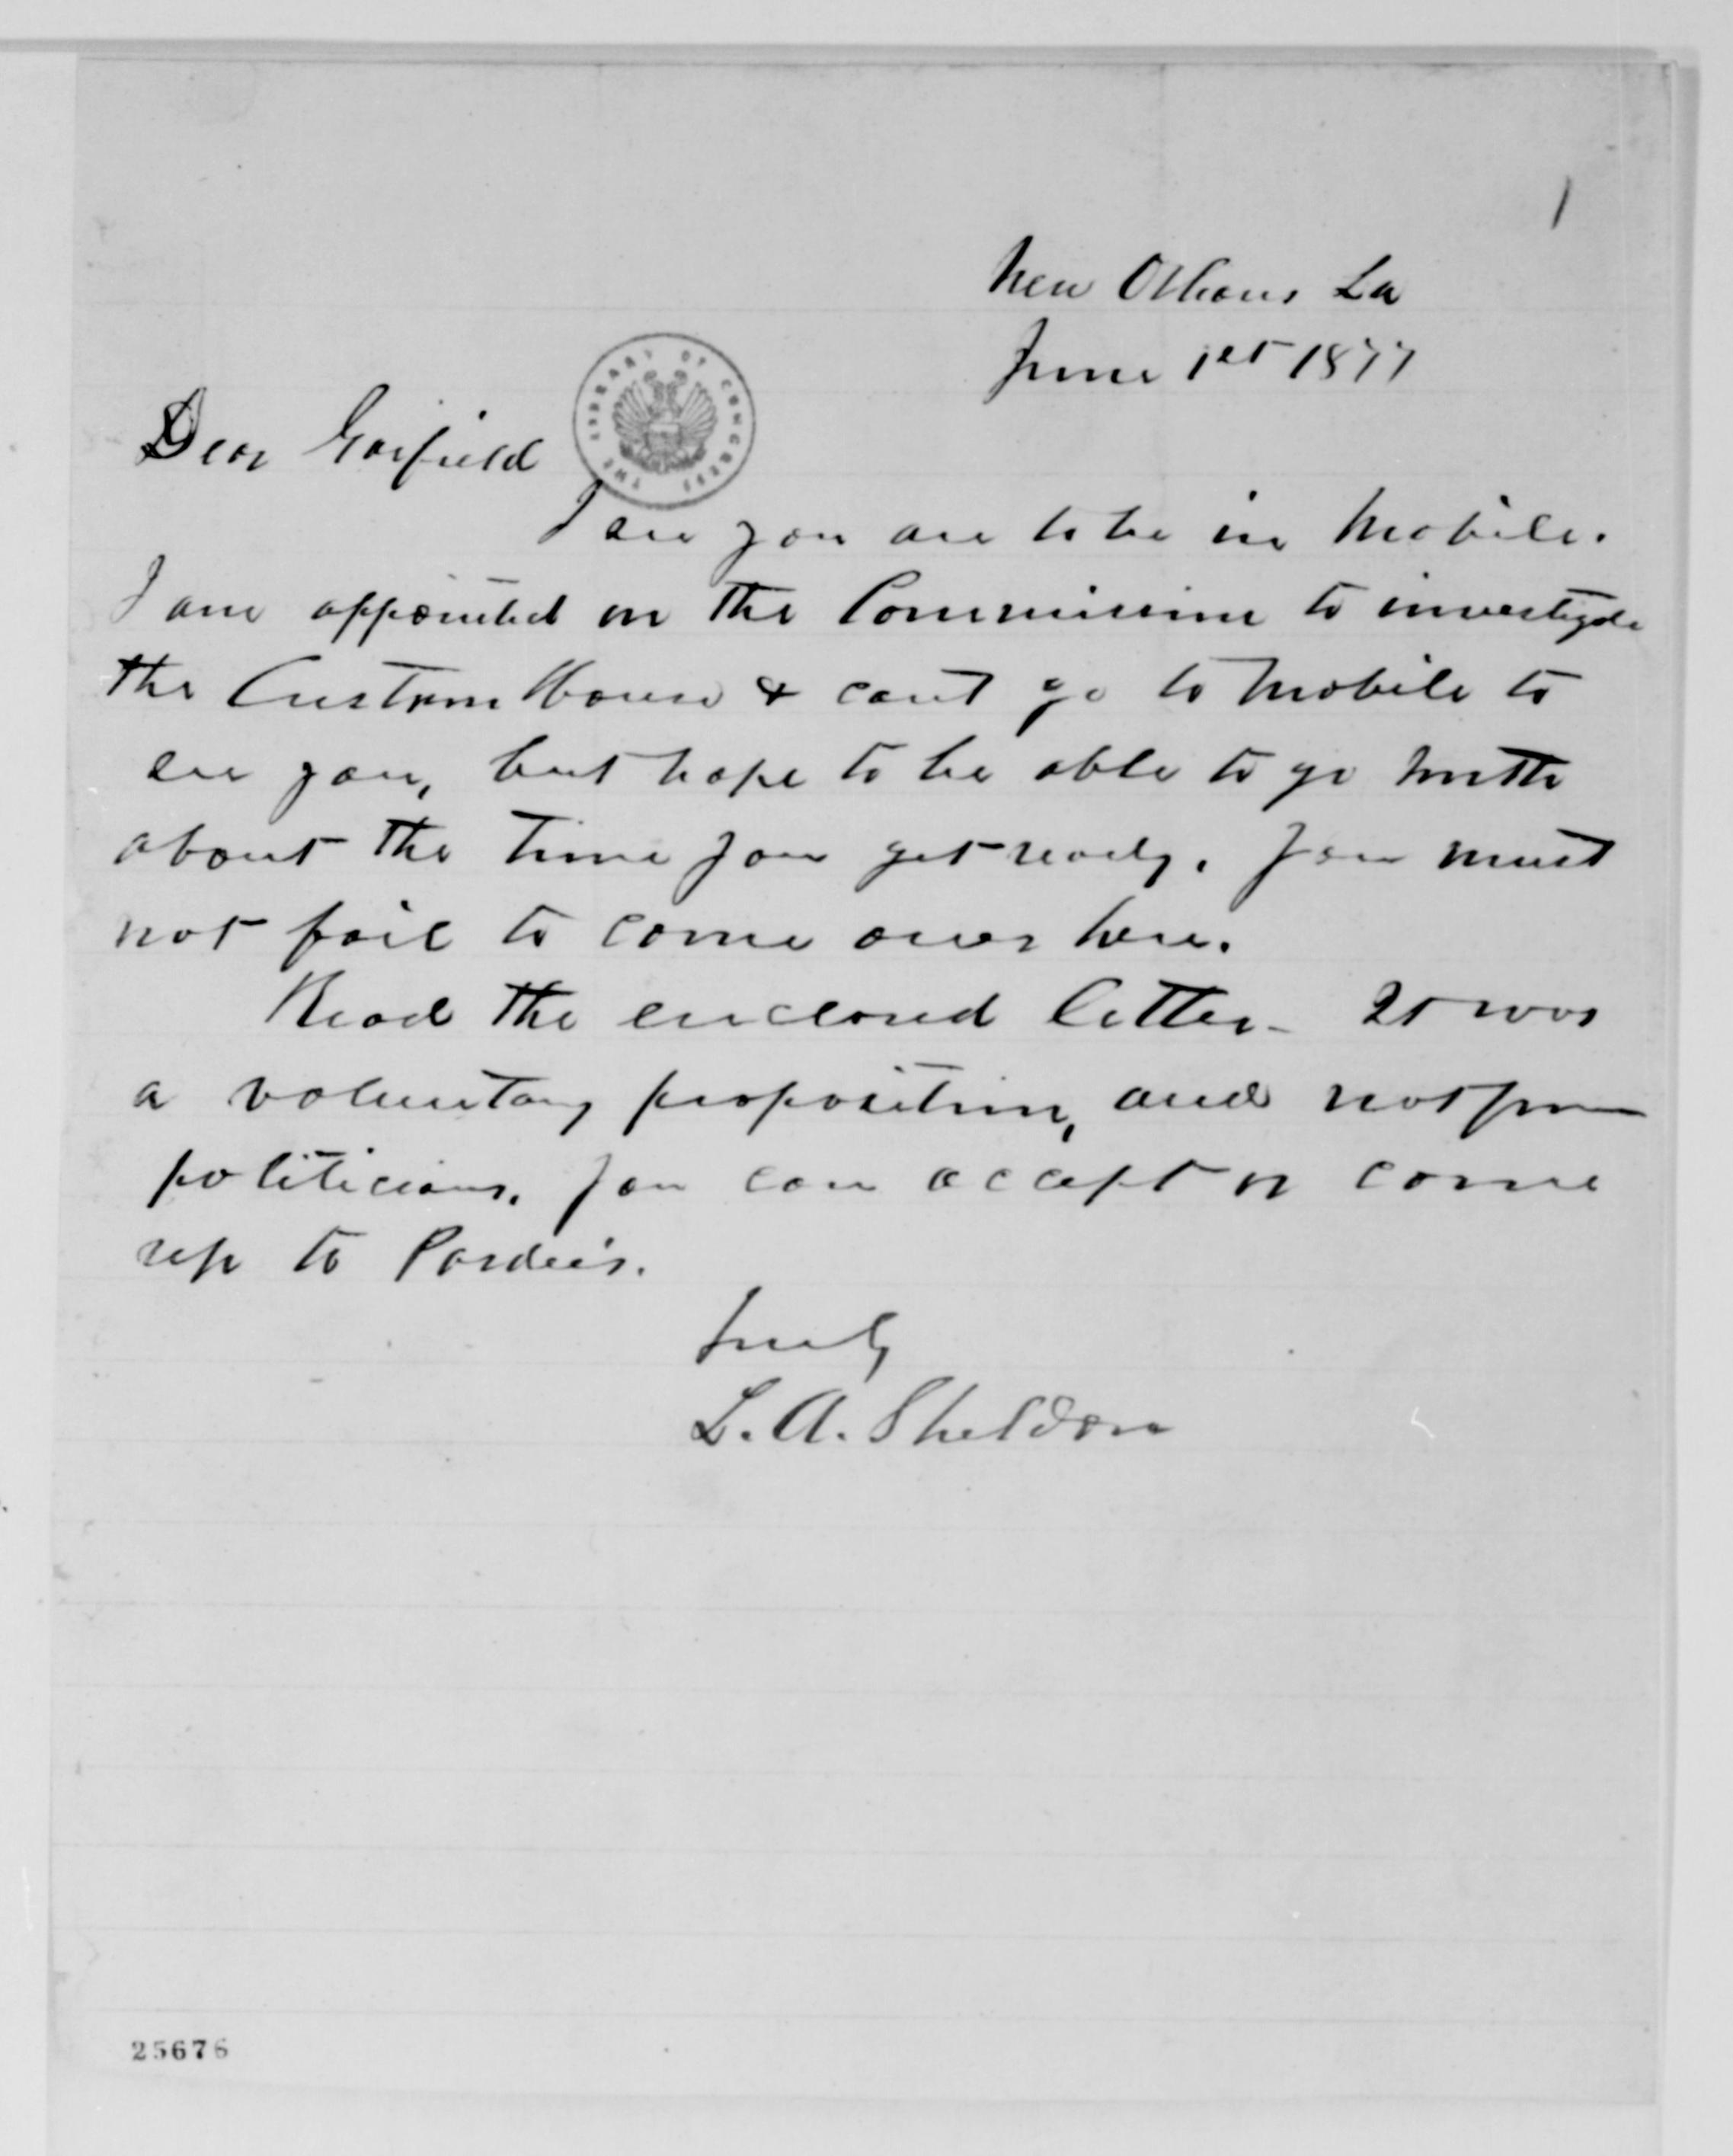 1
New Orleans La
June 1st 1877
Dear Garfield
THE LIBRARY OF CONGRESS
I see you are to be in Mobile.
I am appointed on the Commission to investigate
the Custom House & cant go to Mobile to
see you, but hope to be able to go North
about the time you get ready. You must
not fail to come over here.
Read the enclosed letter - It was
a voluntary proposition, and not from
politicians. You can accept or come
up to Pardee's.
Truly
L. A. Sheldon
25676